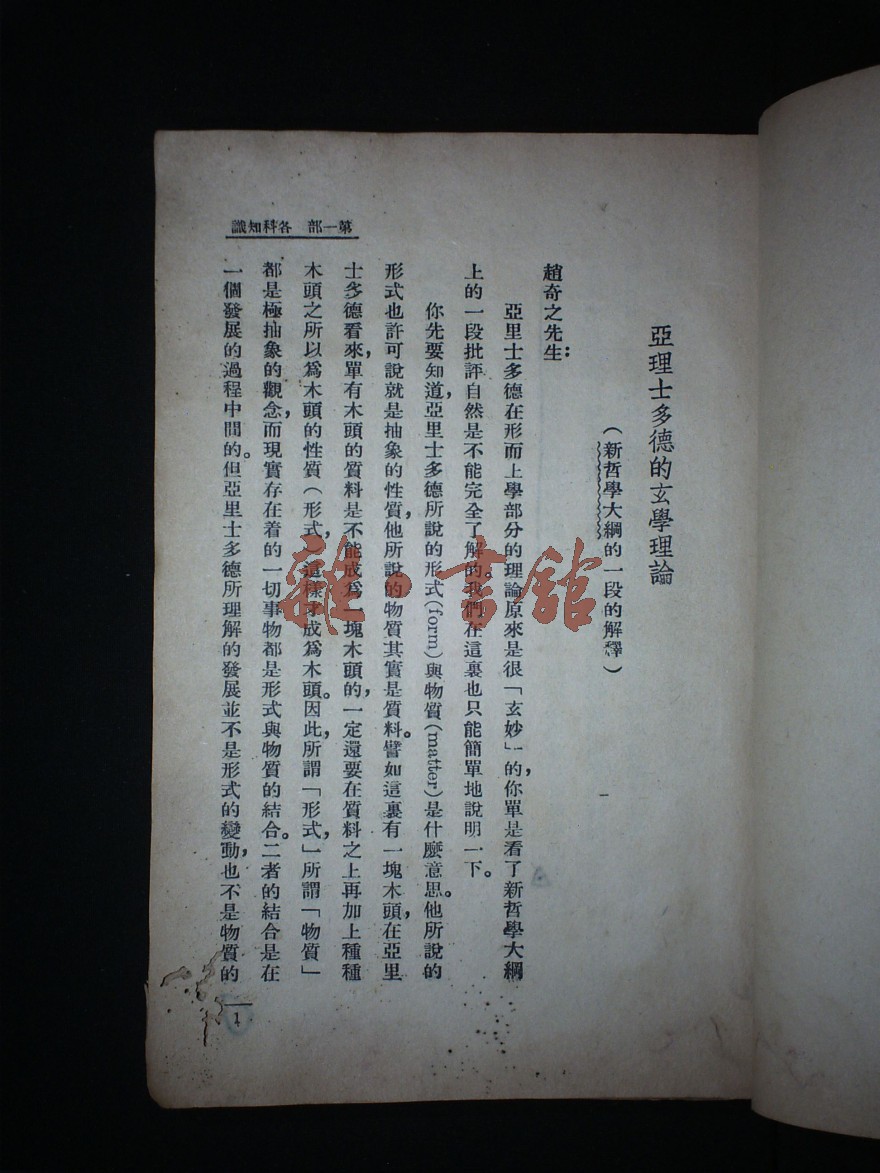 第一部 各科知識
亞理士多德的玄學理論
(新哲學大綱的一段的解釋)
趙奇之先生:
亞里士多德在形而上學部分的理論原來是很「玄妙」的,你單是看了新哲學大綱
上的一段批評自然是不能完全了解的。我們在這裏也只能簡單地說明一下。
你先要知道,亞里士多德所說的形式(form)與物質(matter)是什麼意思。他所說的
形式也許可說就是抽象的性質,他所說的物質其實是質料。譬如這裏有一塊木頭,在亞里
士多德看來,單有木頭的質料是不能成爲一塊木頭的,一定還要在質料之上再加上種種
木頭之所以爲木頭的性質(形式,)這樣才成爲木頭。因此,所謂「形式,」所謂「物質」
都是極抽象的觀念,而現實存在着的一切事物都是形式與物質的結合。二者的結合是在
一個發展的過程中間的。但亞里士多德所理解的發展並不是形式的變動,也不是物質的
1
雜·書館